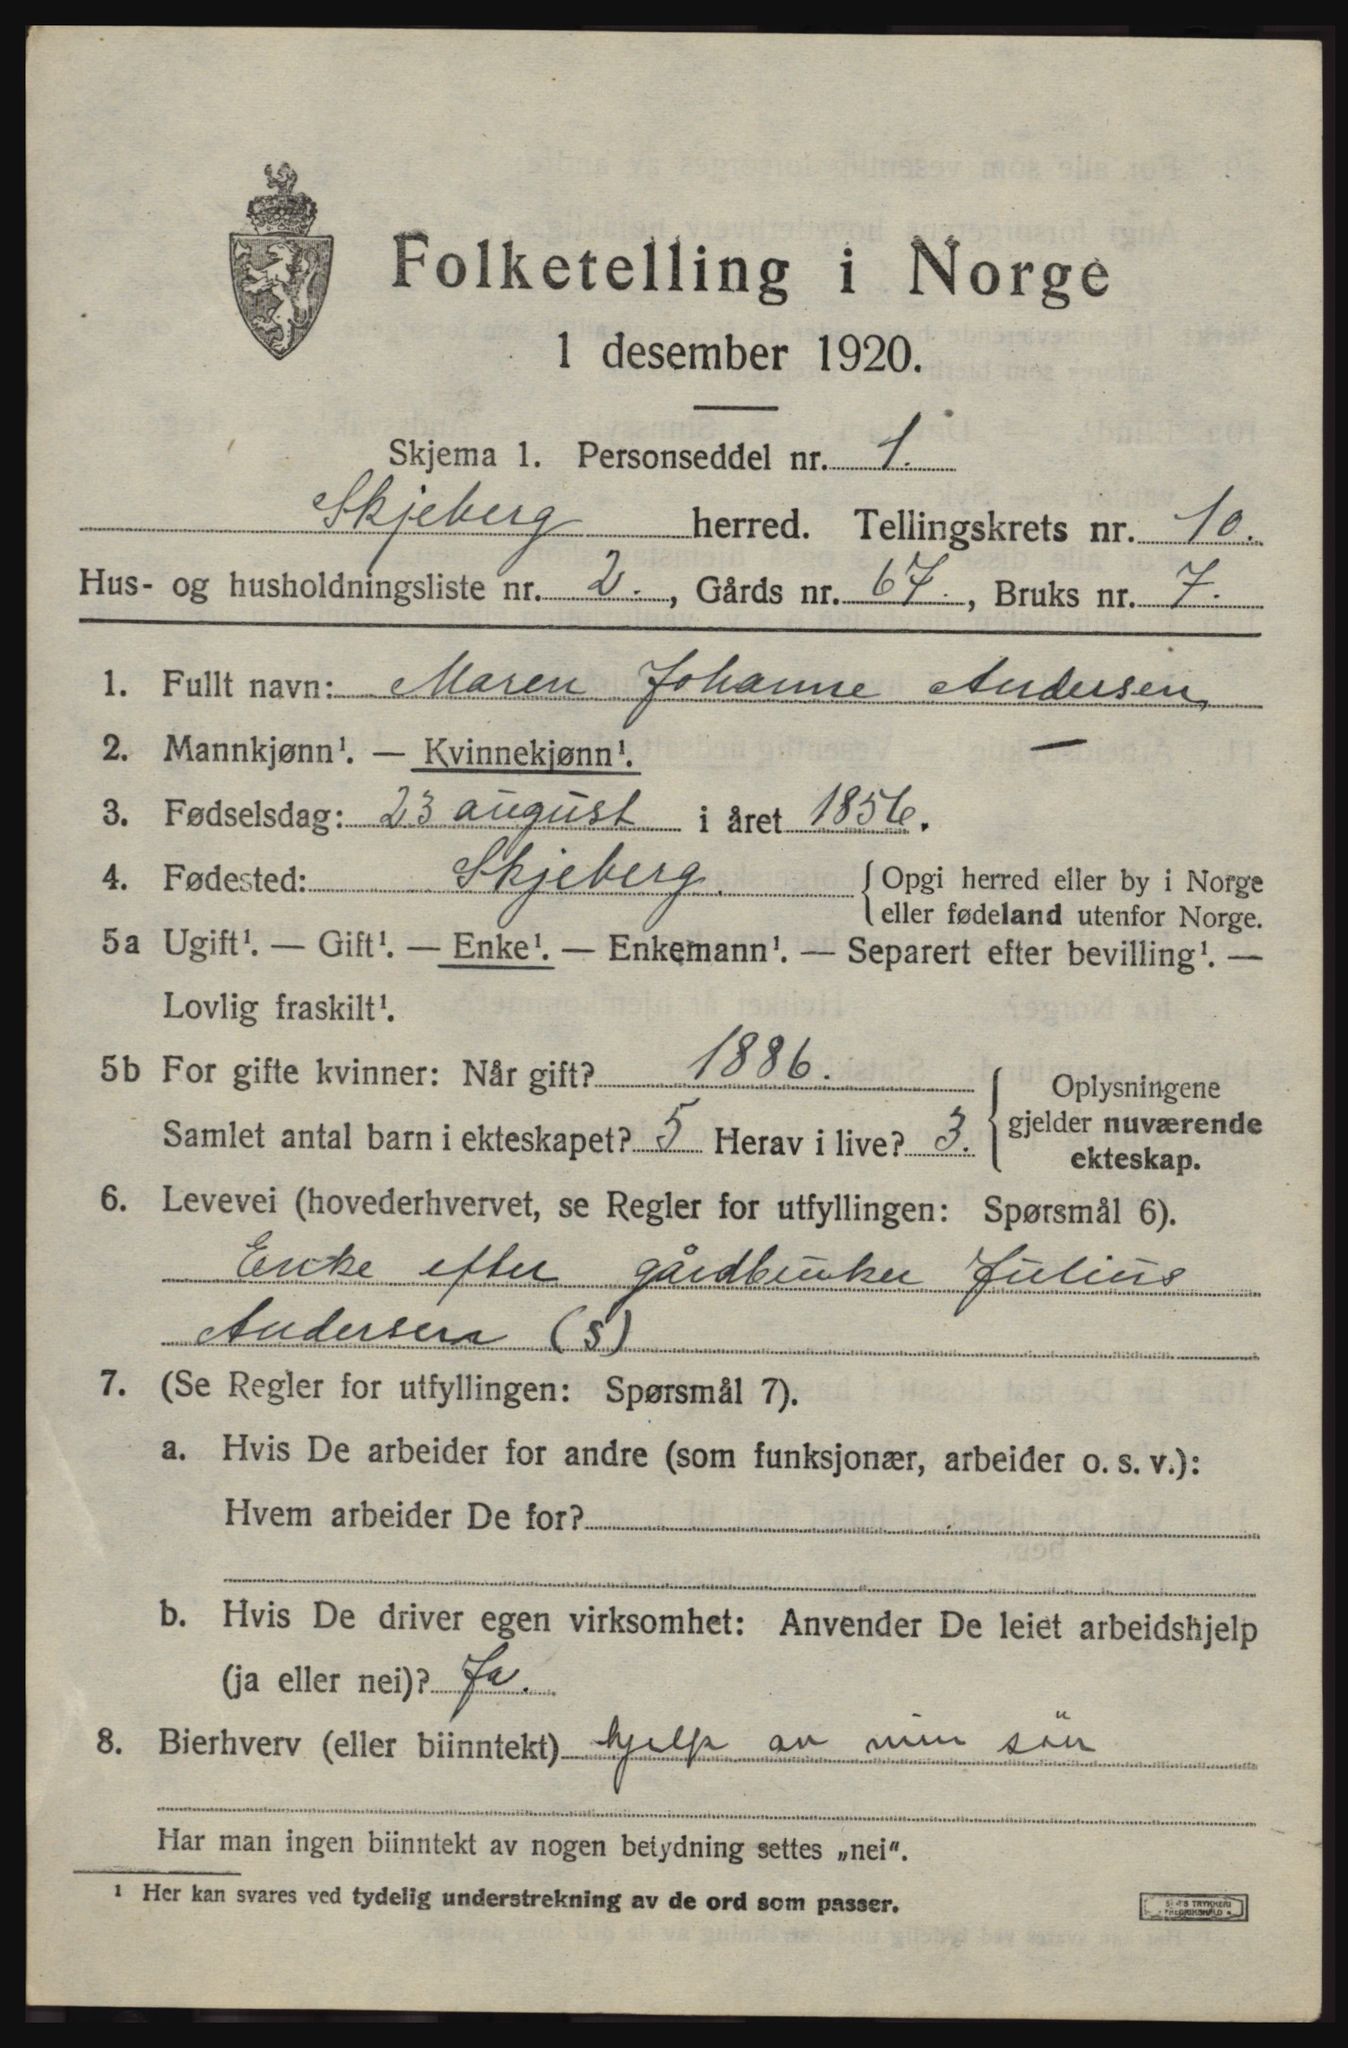 Folketelling i Norge
1 desember 1920.
Skjema 1. Personseddel nr. 1.
Skjeberg herred. Tellingskrets nr. 10.
Hus- og husholdningsliste nr. 2., Gårds nr. 67., Bruks nr. 7.
1. Fullt navn: Maren Johanne Andersen,
2. Mannkjønn¹. — Kvinnekjønn¹. —
3. Fødselsdag: 23 august i året 1856.
4. Fødested: Skjeberg. { Opgi herred eller by i Norge
eller fødeland utenfor Norge.
5a Ugift¹. — Gift¹. — Enke¹. — Enkemann¹. — Separert efter bevilling¹. —
Lovlig fraskilt¹.
5b For gifte kvinner: Når gift? 1886.
Samlet antal barn i ekteskapet? 5 Herav i live? 3.
{ Oplysningene
gjelder nuværende
ekteskap.
6. Levevei (hovederhvervet, se Regler for utfyllingen: Spørsmål 6).
Enke efter gårdbruker Julius
Andersen (S)
7. (Se Regler for utfyllingen: Spørsmål 7).
a. Hvis De arbeider for andre (som funksjonær, arbeider o. s. v.):
Hvem arbeider De for?
b. Hvis De driver egen virksomhet: Anvender De leiet arbeidshjelp
(ja eller nei)? Ja.
8. Bierhverv (eller biinntekt) hjelp av min sön
Har man ingen biinntekt av nogen betydning settes „nei".
¹ Her kan svares ved tydelig understrekning av de ord som passer.
TRYKKERI
FREDRIKSHALD